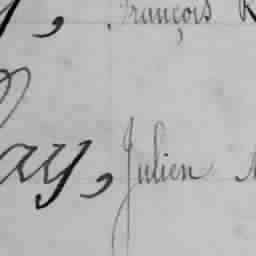 François
ay, Julien